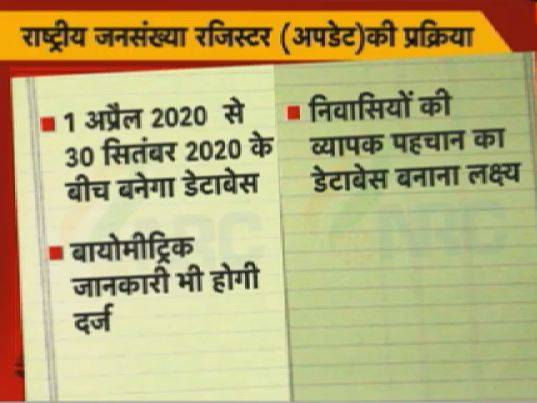 राष्ट्रीय जनसंख्या रजिस्टर (अपडेट)की प्रक्रिया
1 अप्रैल 2020 से
30 सितंबर 2020 के
बीच बनेगा डेटाबेस
बायोमीट्रिक
जानकारी भी होगी
दर्ज
निवासियों की
व्यापक पहचान का
डेटाबेस बनाना लक्ष्य
NRC
NRC